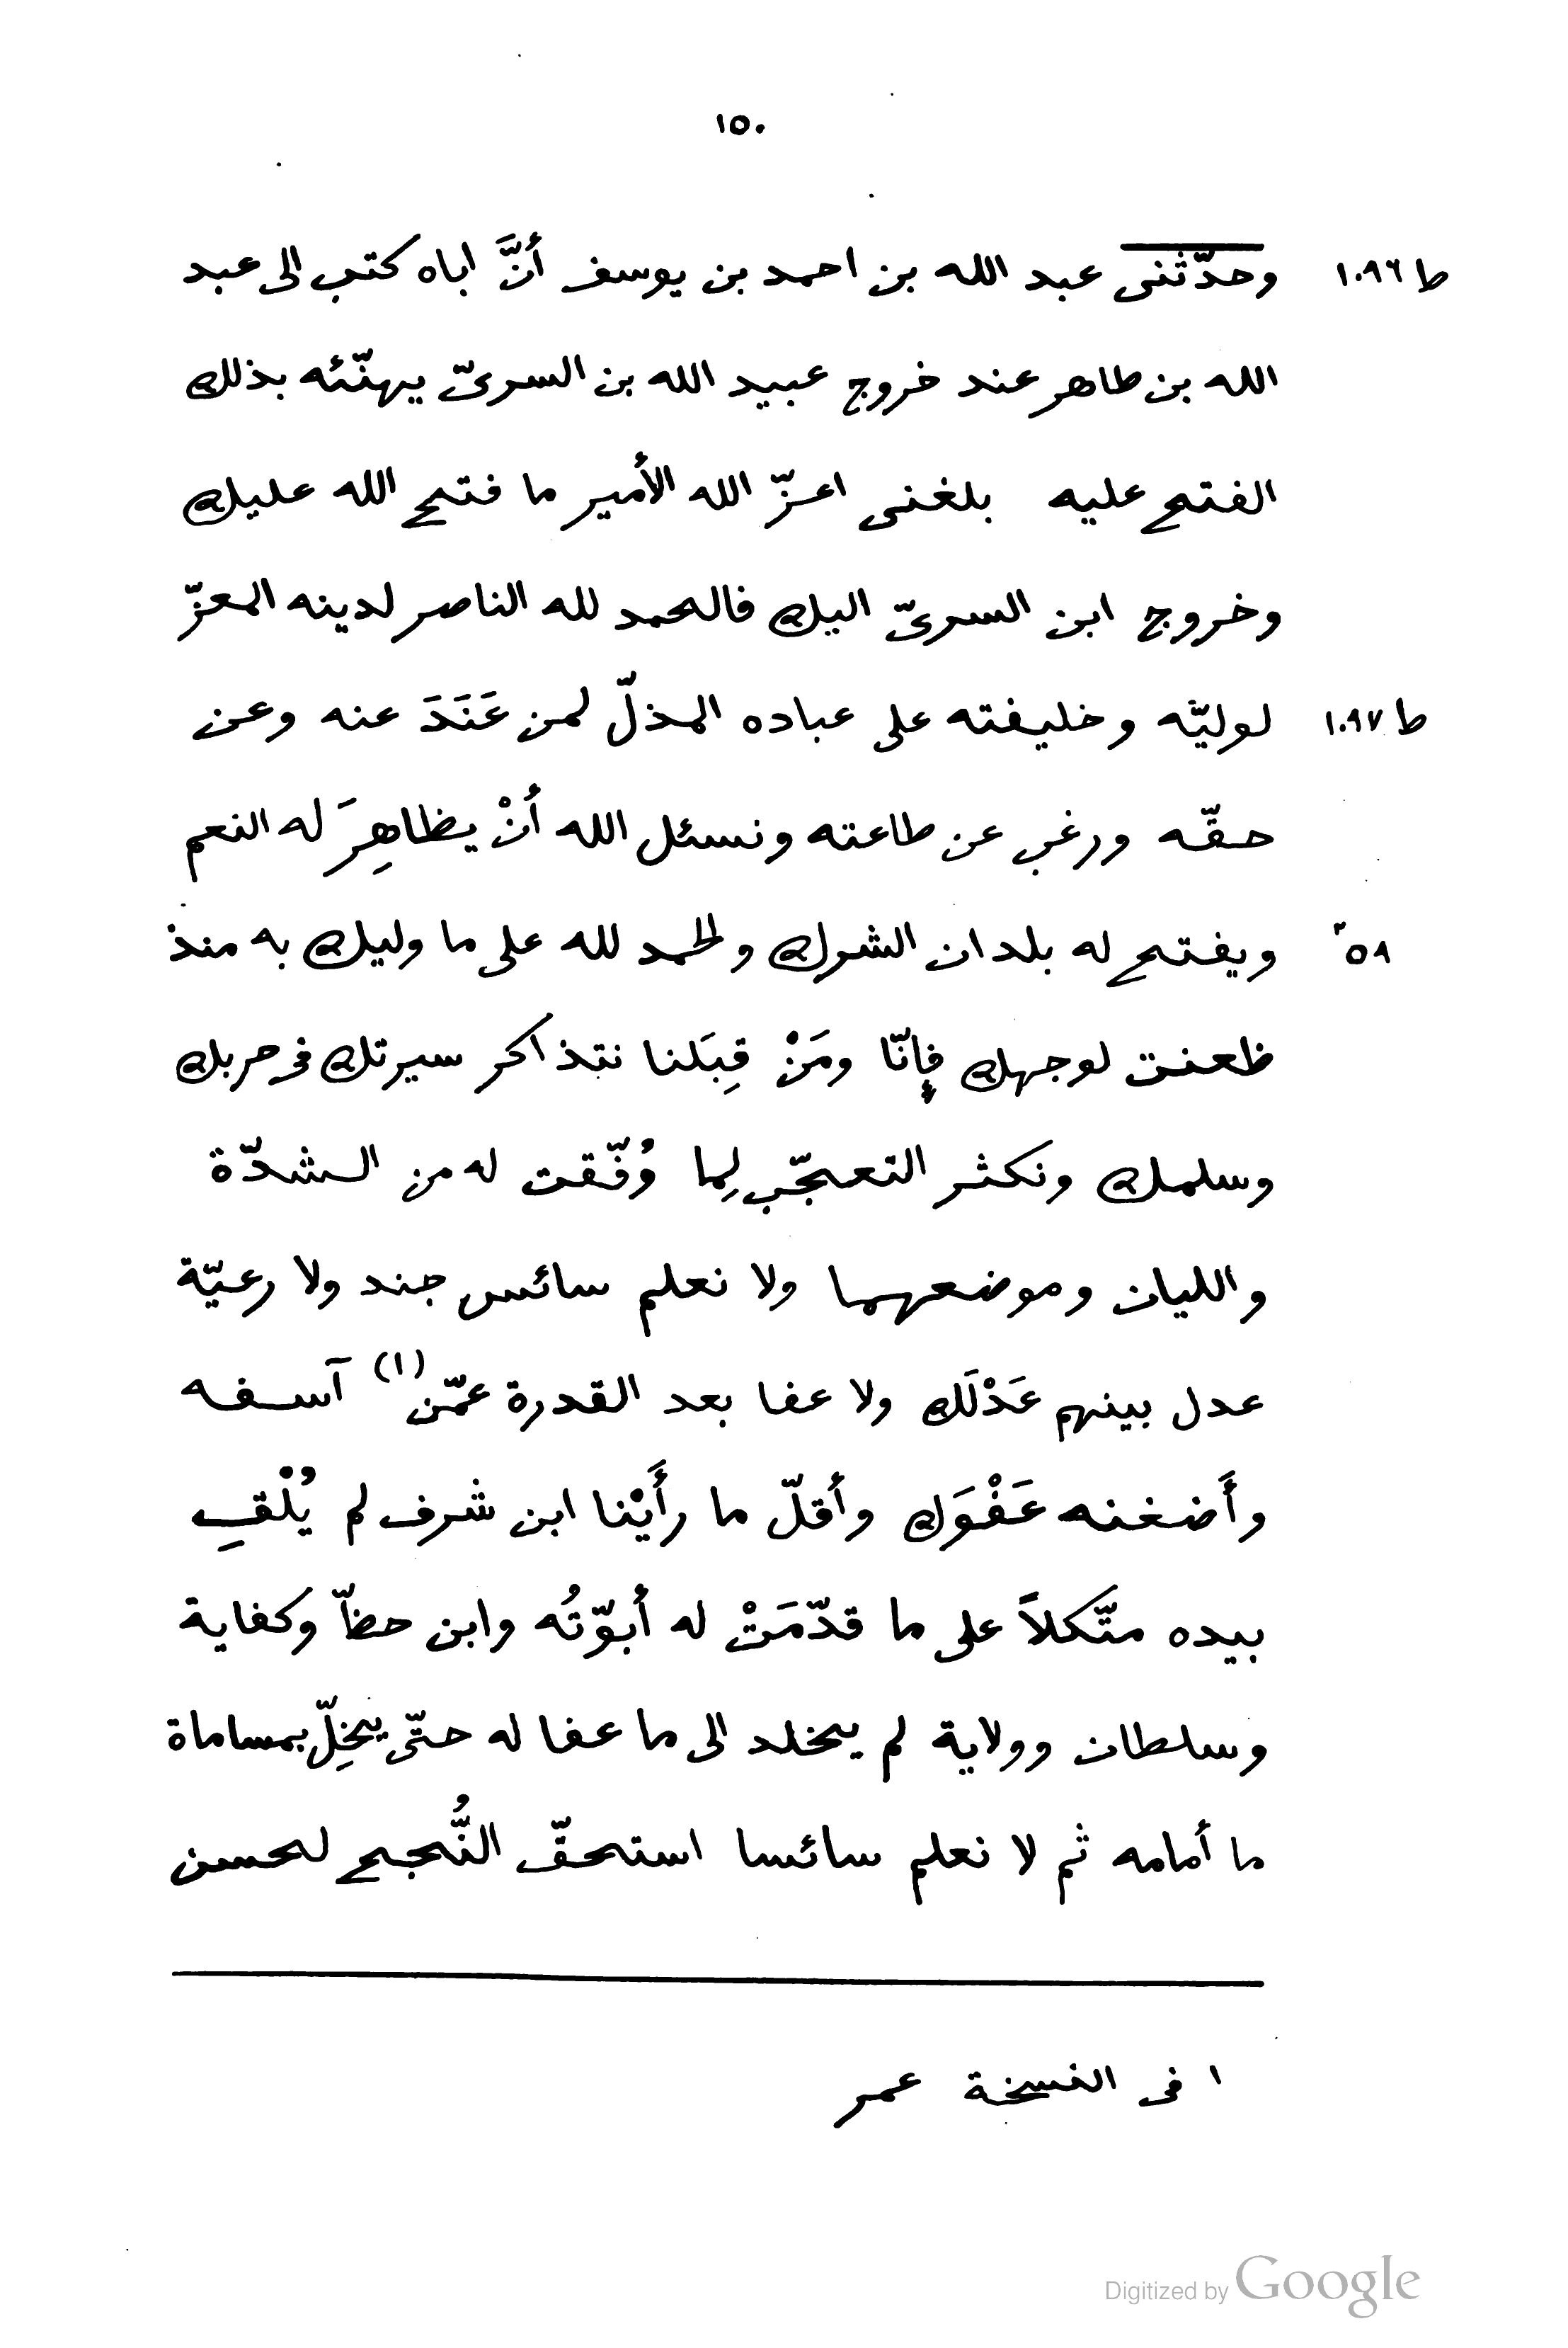 ١٥٠
ط ١٠٩٦ وحدّثنى عبد الله بن احمد بن يوسف أنَّ اباه كتب الى عبد
الله بن طاهر عند خروج عبيد الله بن السرىّ يهنّئه بذلك
الفتح عليه بلغنى اعزّ الله الأمير ما فتح الله عليك
وخروج ابن السرىّ اليك فالحمد لله الناصر لدينه المعزّ
ط ١٠٩٧ لوليّه وخليفته على عباده المذلّ لمن عَنَدَ عنه وعن
حقّه ورغب عن طاعته ونسئل الله أنْ يظاهِرَ له النعم
ويفتح له بلدان الشرك والحمد لله على ما وليك به منذ
ظعنت لوجهك فإنّا ومَنْ قِبَلنا نتذاكر سيرتك فى حربك
وسلمك ونكثر التعجّب لِما وُفّقت له من الشدّة
والليان وموضعهما ولا نعلم سائس جند ولا رعيّة
عدل بينهم عَدْلَك ولا عفا بعد القدرة عمّن (١) آسفه
وأَضغنه عَفْوَك وأقلّ ما رأَيْنا ابن شرف لم يُلْقِ
بيده متّكلاً على ما قدّمَتْ له أبوّتُه وابن حظاّ وكفاية
وسلطان وولاية لم يخلد الى ما عفا له حتّى يخِلّ بمساماة
ما أمامه ثم لا نعلم سائسا استحقّ النُّجح لحسن
١ فى النسخة عمر
Digitized by Google